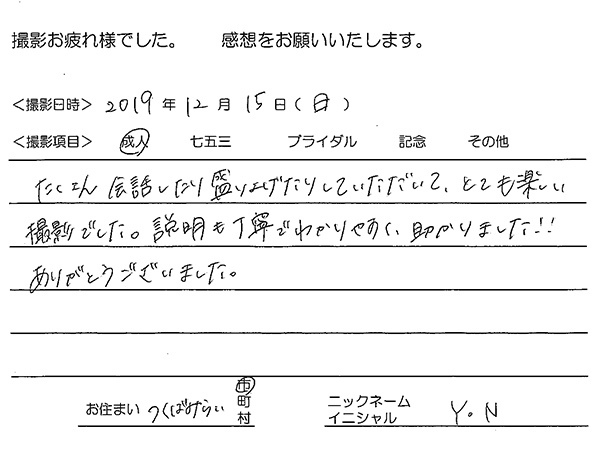 撮影お疲れ様でした。 感想をお願いいたします。
<撮影日時> 2019 年 12 月 15 日 ( 日 )
<撮影項目> 成人 七五三 ブライダル 記念 その他
たくさん 会話したり 盛り上げたりしていただいて、とても楽しい
撮影でした。説明も丁寧でわかりやすく、助かりました!!
ありがとうございました。
お住まい つくばみらい 市 町 村
ニックネーム イニシャル Y.N